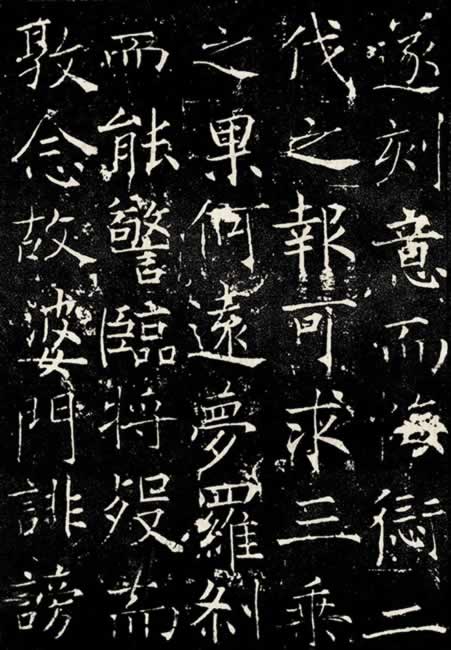 遂刻意而悔愆二
伐之報可求三乘
之果何遠夢羅刹
而能警臨將歿耑
敦念故婆門誹謗